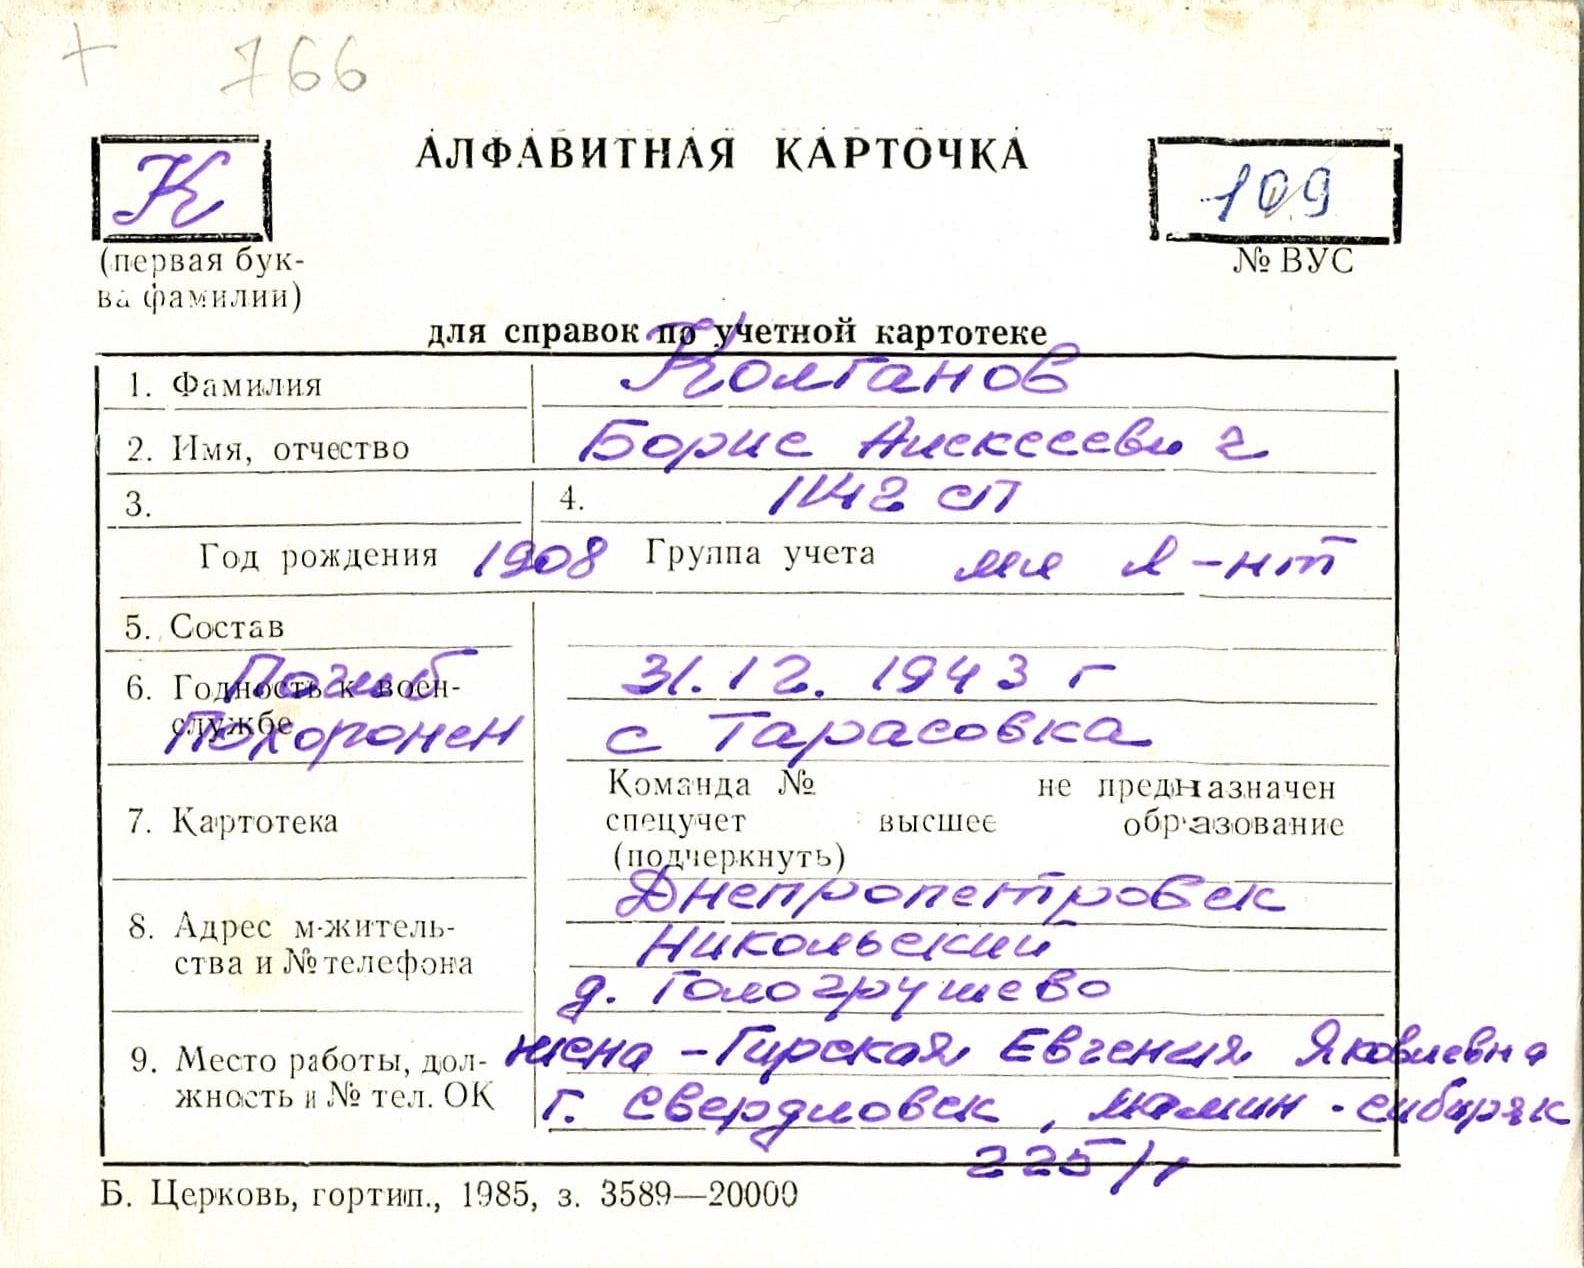 + 766
АЛФАВИТНАЯ КАРТОЧКА
К
109
(первая бук-
ва фамилии)
№ ВУС
для справок по учетной картотеке
1. Фамилия Колганов
2. Имя, отчество Борис Алексеевич
3. 4. 1142 сп
Год рождения 1908 Группа учета мл л-нт
5. Состав
6. Годность к воен- Погиб 31.12.1943 г
службе Похоронен с Тарасовка
Команда № не предназначен
7. Картотека спецучет высшее образование
(подчеркнуть)
Днепропетровск
8. Адрес м-житель- Никольский
ства и № телефона д. Гологрушево
9. Место работы, дол- жена - Гирская Евгения Яковлевна
жность и № тел. ОК г. Свердловск, мамин-сибиряк
225/1
Б. Церковь, гортип., 1985, з. 3589—20000